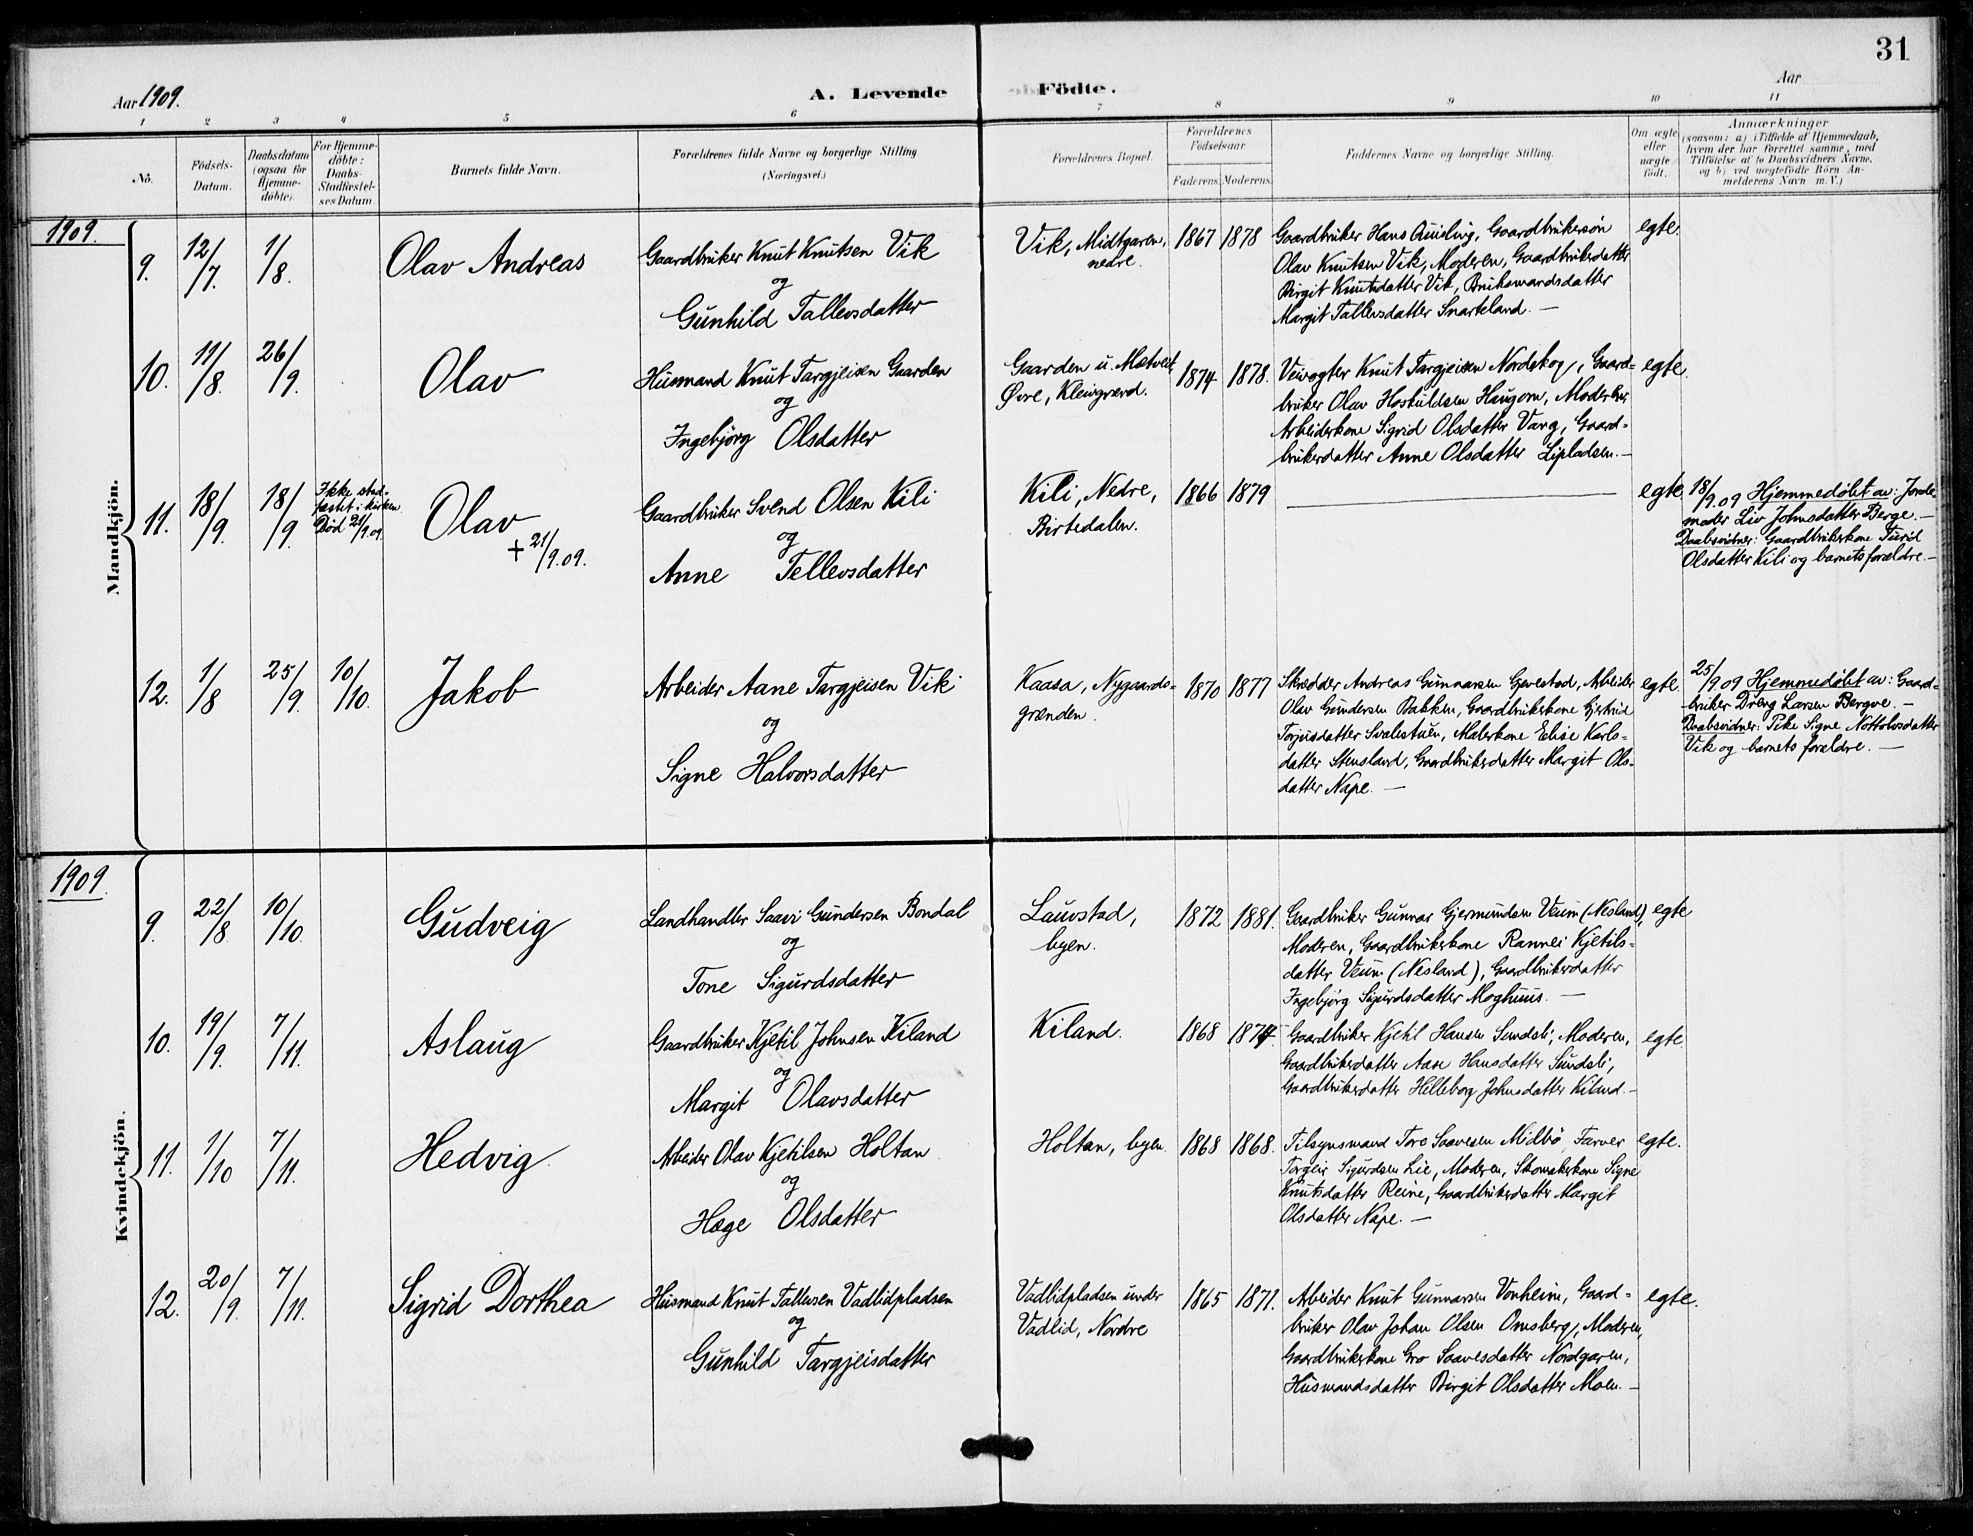 31
Aar 1909.
A. Levende Födte.
Aar
1 2 3 4 5 6 7 8 9 10 11
No.
Födsels-
Datum.
Daabsdatum
(ogsaa for
Hjemme-
døbte).
For Hjemme-
døbte:
Daabs-
Stadfæstel-
ses Datum.
Barnets fulde Navn.
Forældrenes fulde Navne og borgerlige Stilling
(Næringsvei.)
Forældrenes Bopæl.
Forældrenes
Födselsaar.
Faderens. Moderens.
Faddernes Navne og borgerlige Stilling.
Om ægte
eller
uægte
født.
Anmærkninger
(saasom: a) i Tilfælde af Hjemmedaab,
hvem der har forrettet samme, med
Tilföielse af to Daabsvidners Navne,
og b) ved uægtefödte Börn An-
melderens Navn m. V.)
Mandkjön.
1909.
9.
12/7.
1/8.
Olav Andreas
Gaardbruker Knut Knutsen Vik
og
Gunhild Tallevsdatter
Vik, Midtgaren,
nedre.
1867 1878
Gaardbruker Hans Quisling, Gaardbrukersøn
Olav Knutsen Vik, Moderen, Gaardbrukerdatter
Birgit Knutsdatter Vik, Bruksmandsdatter
Margit Tallevsdatter Snarteland. —
egte.
10.
11/8.
26/9.
Olav
Husmand Knut Targjeisen Gaarden
og
Ingebjørg Olsdatter
Gaarden u. Mætveit,
Øvre, Kleivgrend.
1874 1878.
Veivogter Knut Targjeisen Nordskog, Gaard-
bruker Olav Hoskuldsen Haugom, Moderen,
Arbeiderkone Sigrid Olsdatter Varg, Gaard-
brukerdatter Anne Olsdatter Lipladsen. —
egte.
11.
18/9.
18/9.
Ikke stad-
fæstet i kirken
Død 21/9.09.
Olav
+ 21/9.09.
Gaardbruker Svend Olsen Kili
og
Anne Tellevsdatter
Kili, Nedre,
Birtedalen.
1866 1879
egte
18/9.09 Hjemmedøbt av: Jorde-
moder Liv Johnsdatter Berge. —
Daabsvidner: Gaardbrukerkone Turid
Olsdatter Kili og barnets forældre. —
12.
1/8
25/9.
10/10.
Jakob
Arbeider Aane Targjeisen Vik
og
Signe Halvorsdatter
Kaasa, Nygaards-
grænden.
1870 1877
Skrædder Andreas Gunnarsen Gjevestad, Arbeider
Olav Gundersen Bakken, Gaardbrukerkone Gjertrud
Torjusdatter Svalestuen, Malerkone Elise Karls-
datter Stensland, Gaardbrukerdatter Margit Ols-
datter Nape. —
egte.
25/9.09 Hjemmedøbt av: Gaard-
bruker Dreng Larsen Bergve. —
Daabsvidner: Pike Signe Nottolvsdatter
Vik og barnets forældre. —
Kvindekjön.
1909.
9.
22/8.
10/10.
Gudveig
Landhandler Saavi Gundersen Bondal
og
Tone Sigurdsdatter
Lauvstad,
byen.
1872 1881.
Gaardbruker Gunnar Gjermundsen Veum (Nesland),
Moderen, Gaardbrukerkone Rannei Kjetils-
datter Veum (Nesland), Gaardbrukerdatter
Ingebjørg Sigurdsdatter Moghuus. —
egte
10.
19/9.
7/11.
Aslaug
Gaardbruker Kjetil Johnsen Kiland
og
Margit Olavsdatter
Kiland.
1868 1874.
Gaardbruker Kjetil Hansen Sundsli, Moderen,
Gaardbrukerdatter Aase Hansdatter Sundsli,
Gaardbrukerdatter Hilleborg Johnsdatter Kiland. —
egte.
11.
1/10
7/11.
Hedvig.
Arbeider Olav Kjetilsen Holtan
og
Hæge Olsdatter
Holtan, byen.
1868 1868.
Tilsynsmand Tore Saavesen Midbø, Farver
Torgeir Sigurdsen Lie, Moderen, Skomakerkone Signe
Knutsdatter Reine, Gaardbrukerdatter Margit
Olsdatter Nape. —
egte.
12.
20/9.
7/11.
Sigrid Dorthea
Husmand Knut Tallevsen Vadlidpladsen
og
Gunhild Targjeisdatter
Vadlidpladsen under
Vadlid, Nordre
1865 1871.
Arbeider Knut Gunnarsen Vonheim, Gaard-
bruker Olav Johan Olsen Omsberg, Moderen,
Gaardbrukerkone Gro Saavesdatter Nordgaren,
Husmandsdatter Birgit Olsdatter Moen. —
egte.